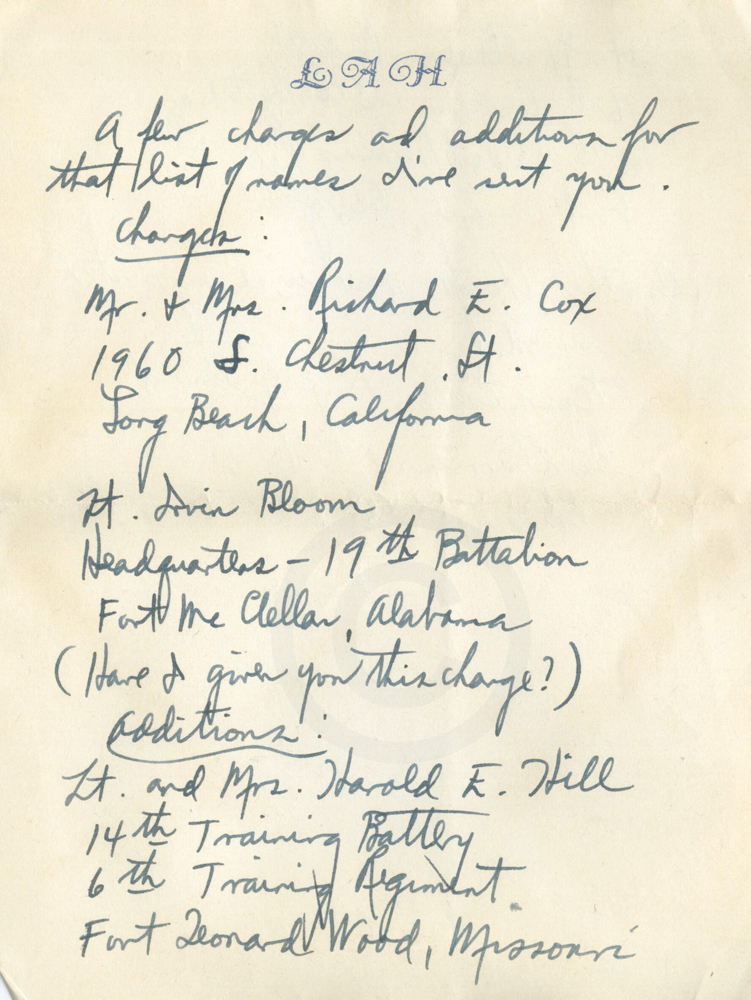 LAH
A few changes and additions for
that list of names I've sent you.
Changes:
Mr. & Mrs. Richard E. Cox
1960 S. Chestnut St.
Long Beach, California
Lt. Irvin Bloom
Headquarters - 19th Battalion
Fort Mc Clellan, Alabama
(Have I given you this change?)
Additions:
Lt. and Mrs. Harold E. Hill
14th Training Battery
6th Training Regiment
Fort Leonard Wood, Missouri